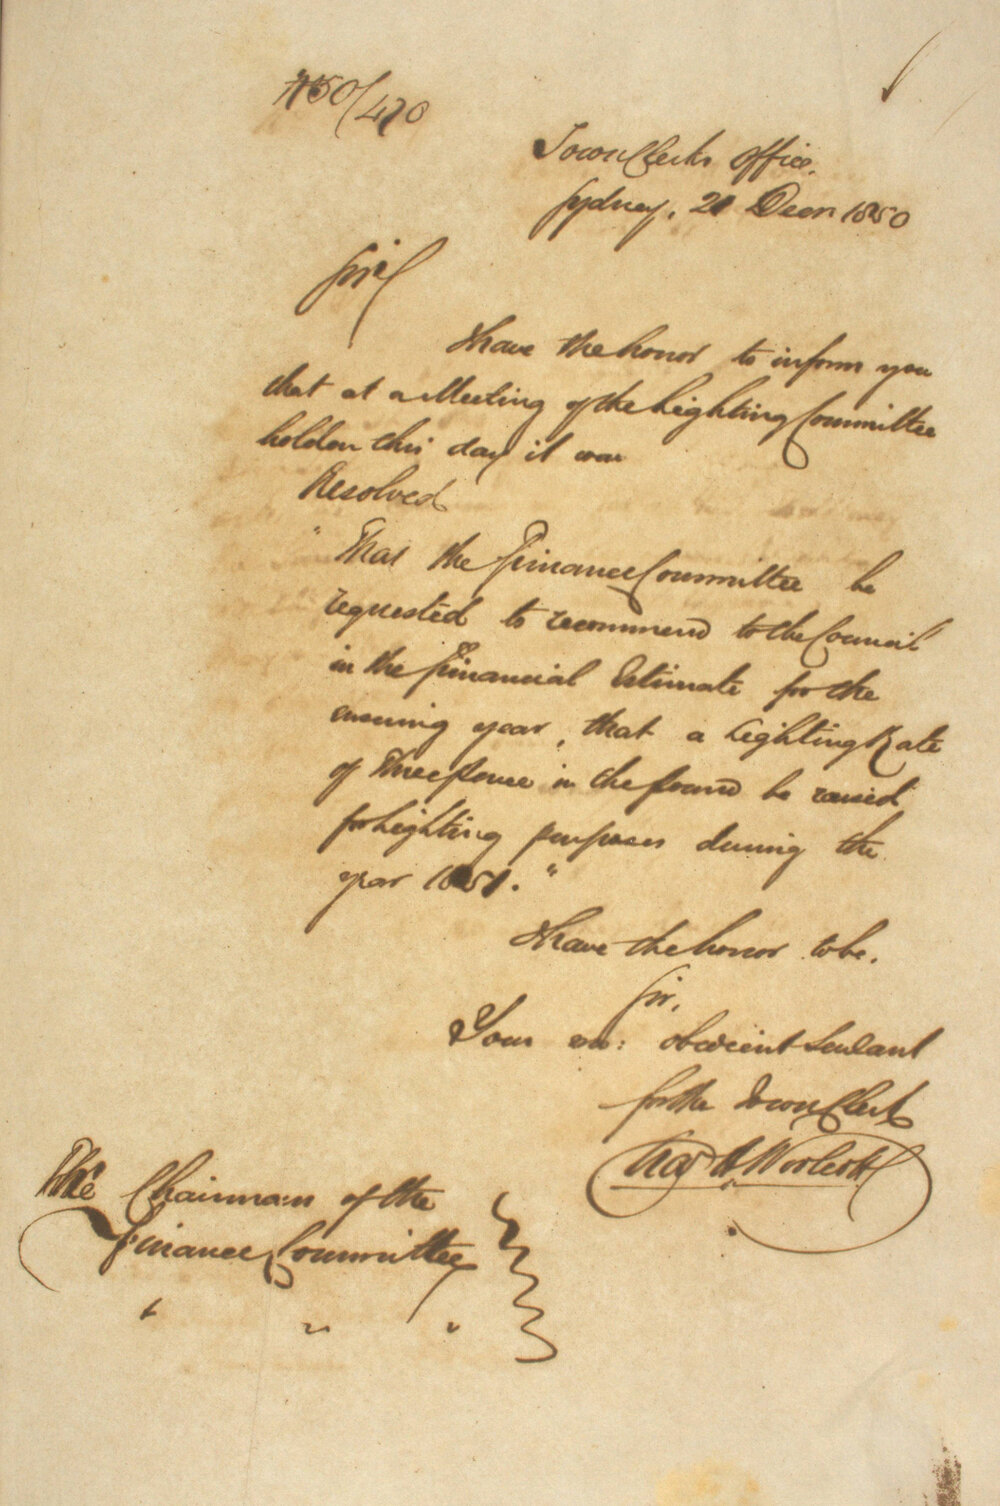 50/470
Town Clerks Office.
Sydney, 21 Decr 1850
Sir
I have the honor to inform you
that at a Meeting of the Lighting Committee
holden this day it was
Resolved
"That the Finance Committee be
requested to recommend to the Council
in the Financial Estimate for the
ensuing year, that a Lighting Rate
of Three pence in the pound be raised
for Lighting purposes during the
year 1851."
I have the honor to be.
Sir,
Your obedient Servant
for the Town Clerk
Chas H. Woolcott
The Chairman of the
Finance Committee
" " "